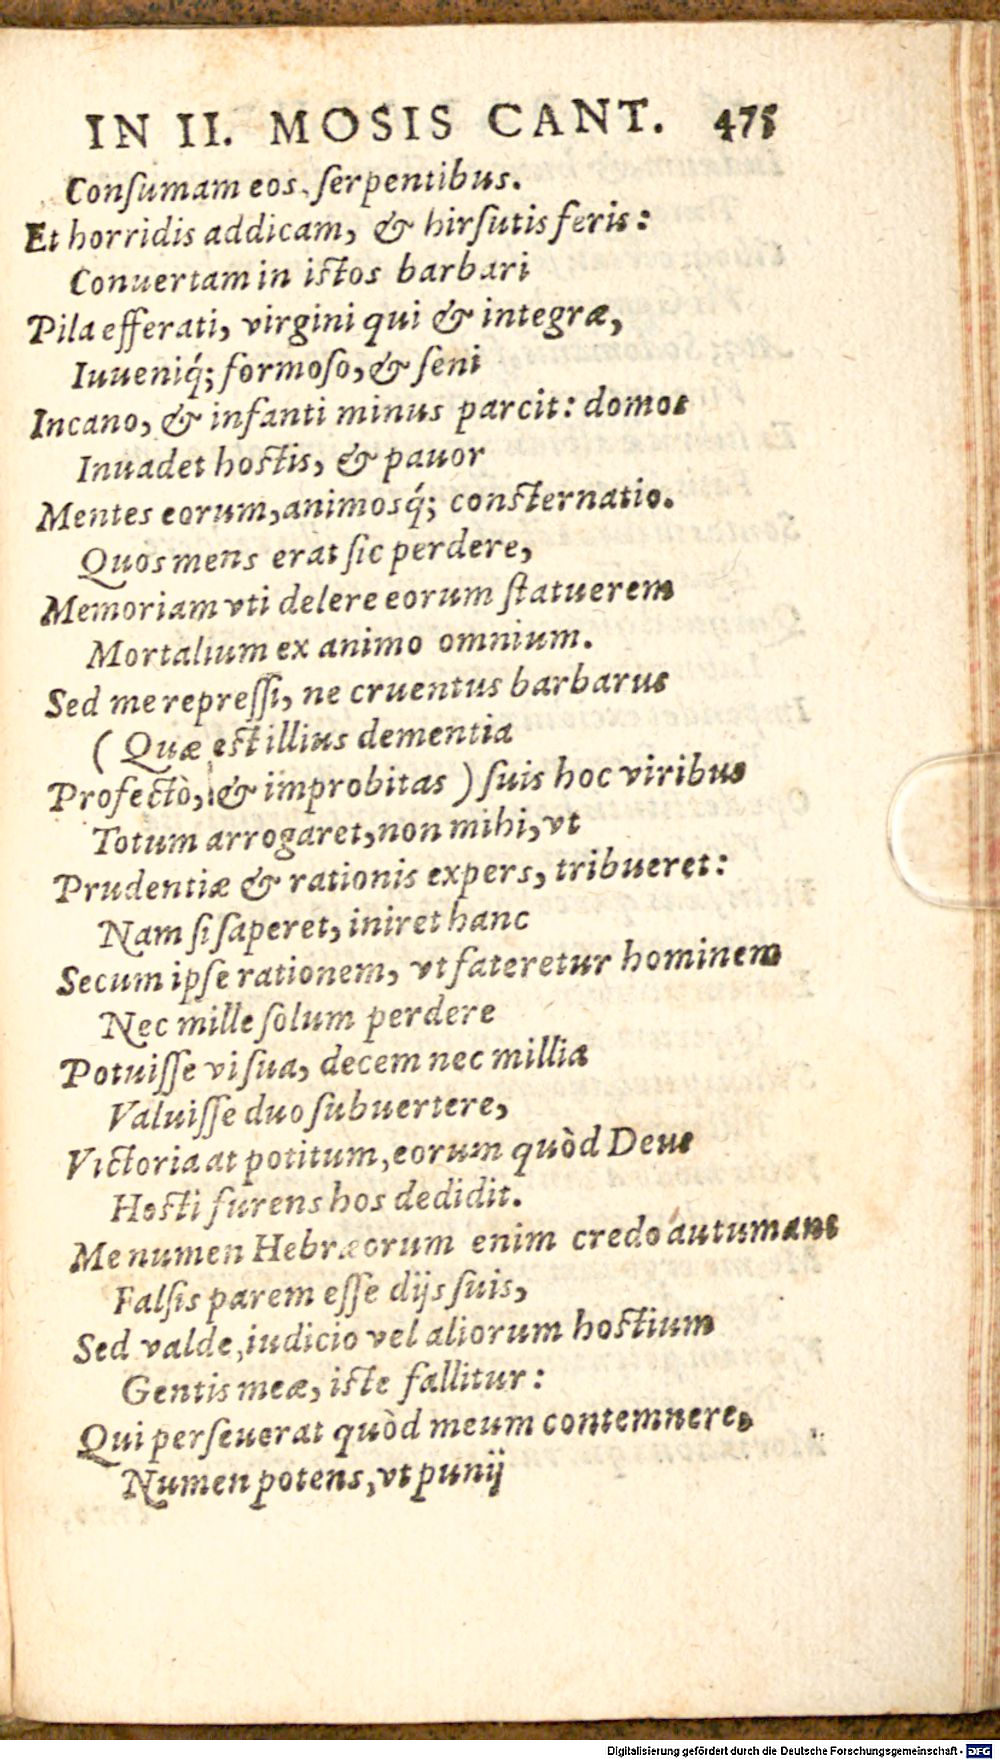 IN II. MOSIS CANT. 475
Conſumam eos ſerpentibus.
Et horridis addicam, & hirſutis feris:
Conuertam in istos barbari
Pila efferati, virgini qui & integræ,
Iuueniq́; formoſo, & ſeni
Incano, & infanti minus parcit: domos
Inuadet hostis, & pauor
Mentes eorum, animosq́; consternatio.
Quos mens erat ſic perdere,
Memoriam vti delere eorum ſtatuerem
Mortalium ex animo omnium.
Sed me repreſſi, ne cruentus barbarus
( Quæ est illius dementia
Profectò, & improbitas ) ſuis hoc viribus
Totum arrogaret, non mihi, vt
Prudentiæ & rationis expers, tribueret:
Nam ſi ſaperet, iniret hanc
Secum ipſe rationem, vt fateretur hominem
Nec mille ſolum perdere
Potuiſſe vi ſua, decem nec millia
Valuiſſe duo ſubuertere,
Victoria at potitum, eorum quòd Deus
Hosti furens hos dedidit.
Me numen Hebræorum enim credo autumans
Falſis parem eſſe dijs ſuis,
Sed valde, iudicio vel aliorum hostium
Gentis meæ, iste fallitur:
Qui perſeuerat quòd meum contemnere,
Numen potens, vt punij
Digitalisierung gefördert durch die Deutsche Forschungsgemeinschaft - DFG